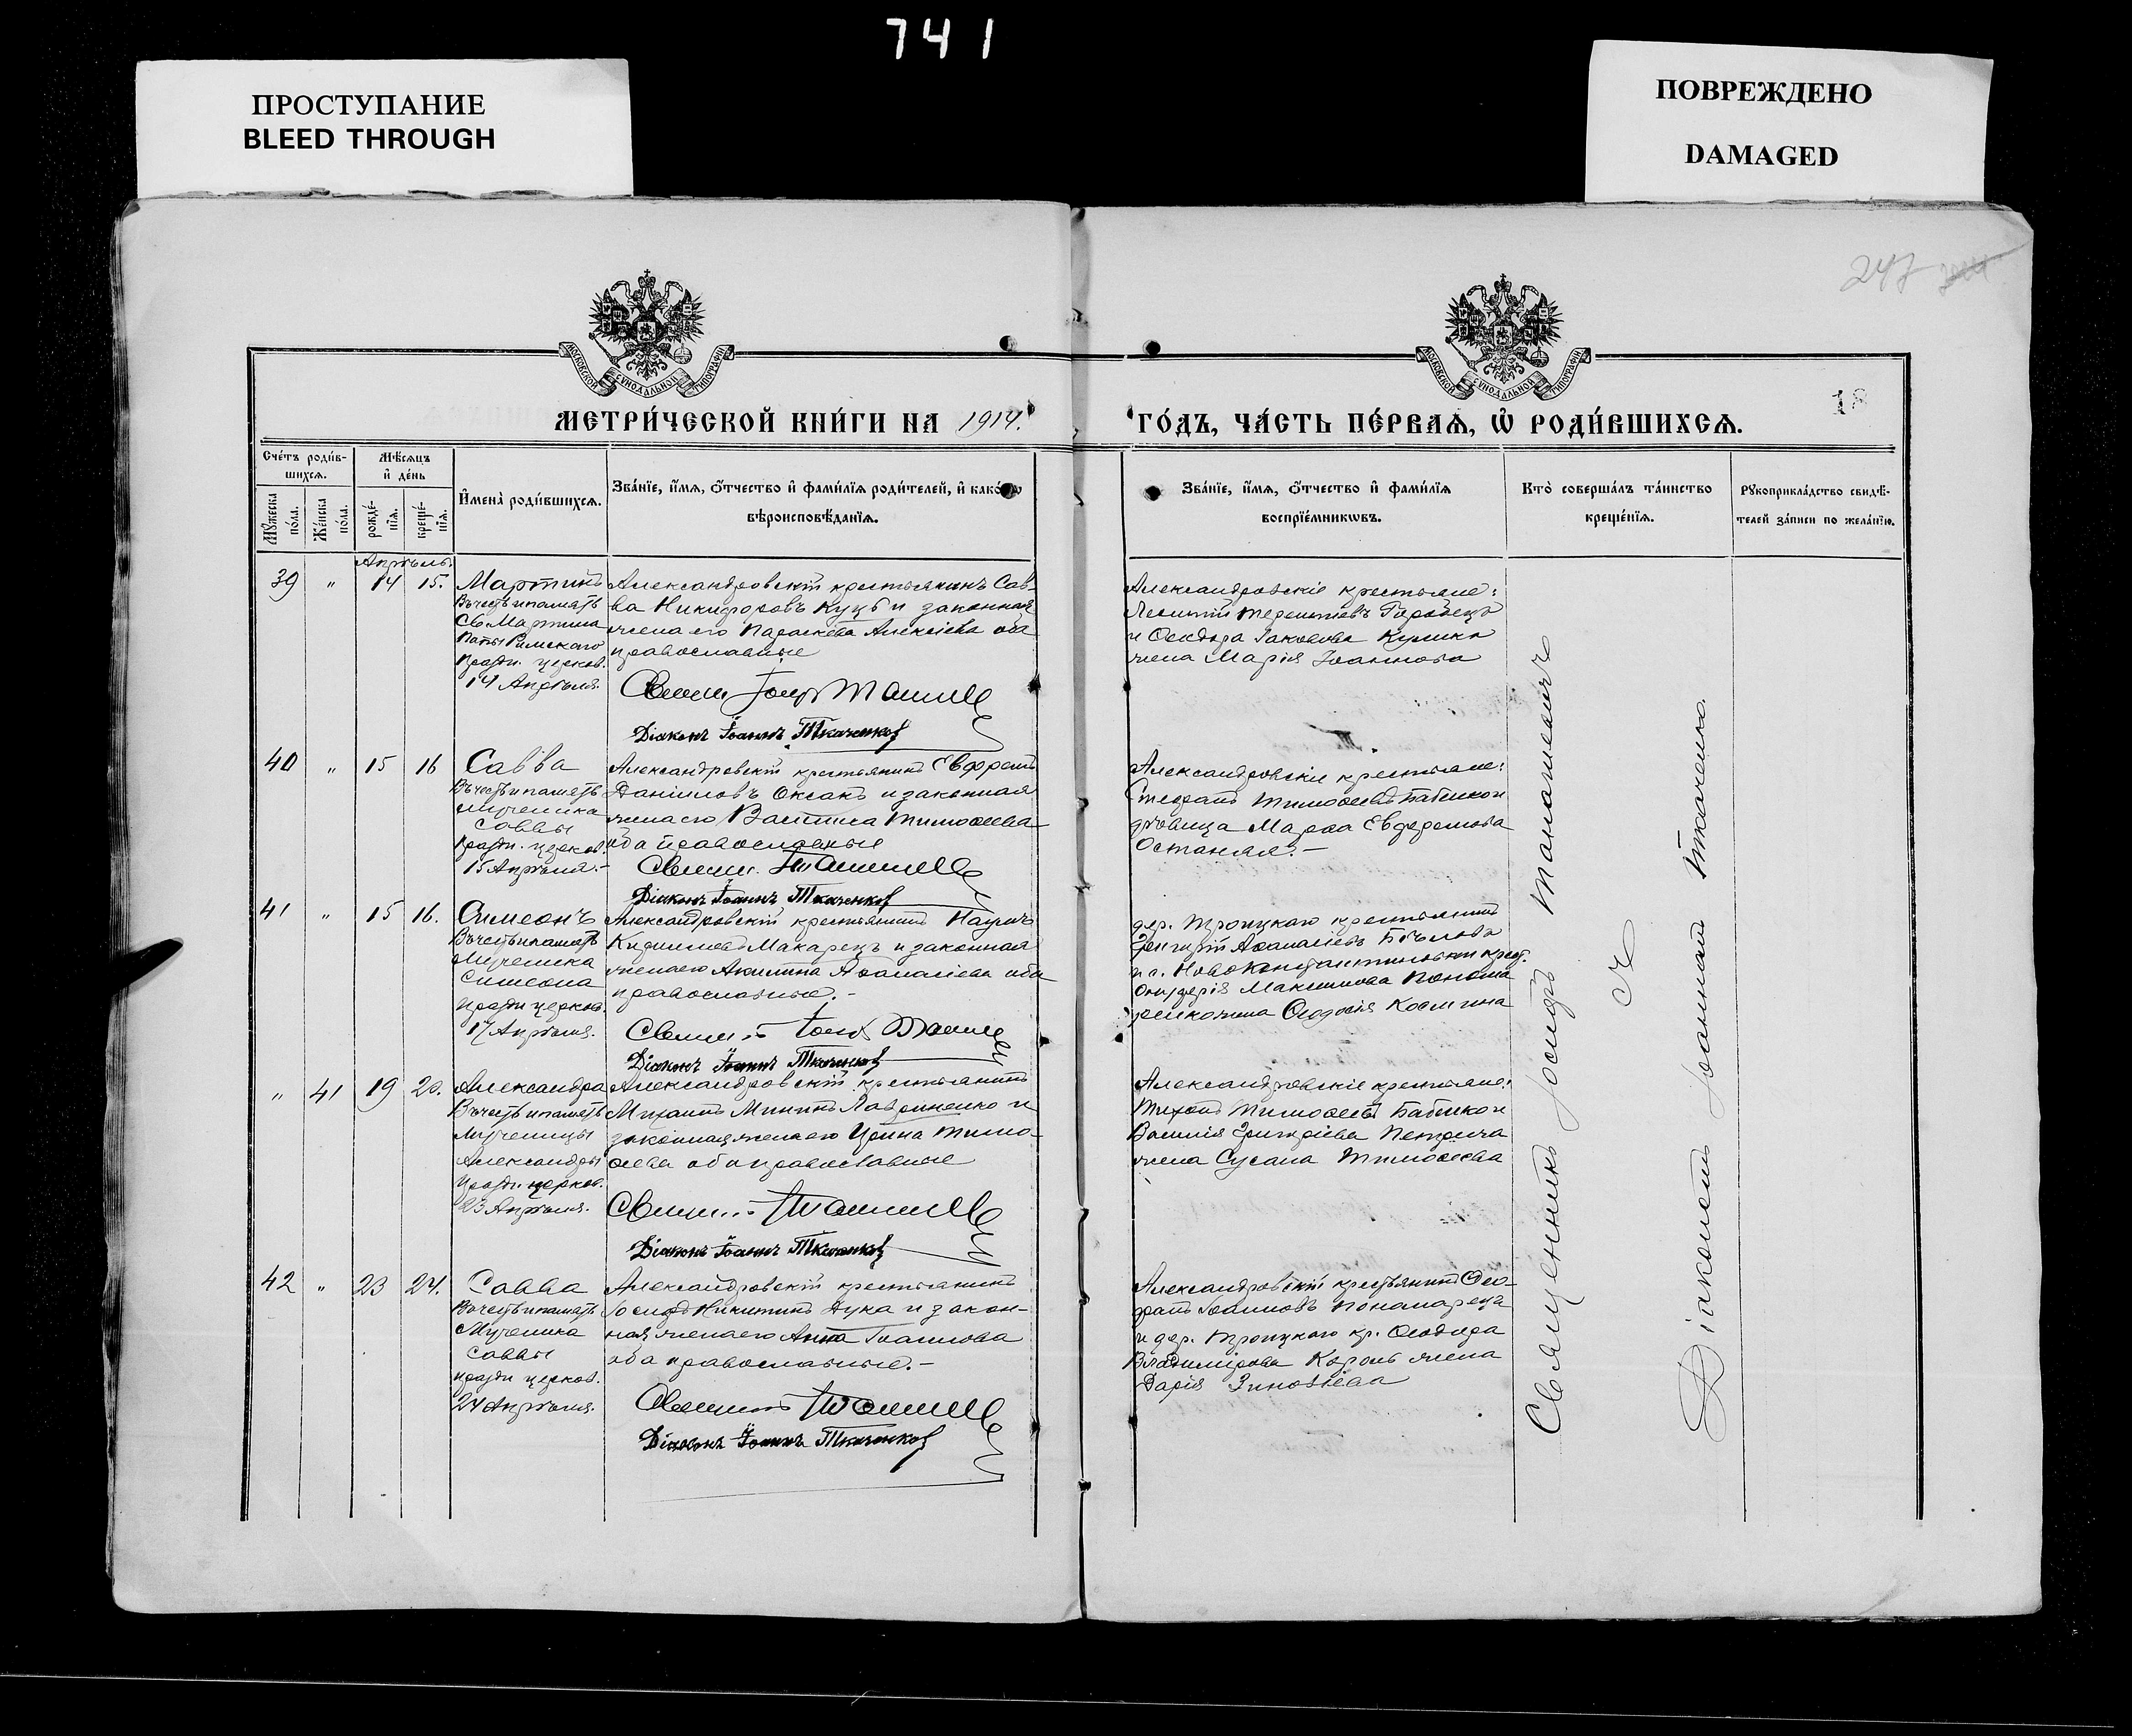 741
ПРОСТУПАНИЕ
BLEED THROUGH
ПОВРЕЖДЕНО
DAMAGED
247
МОСКОВСКОЙ СѴНОДАЛЬНОЙ ТИПОГРАФІИ
МОСКОВСКОЙ СѴНОДАЛЬНОЙ ТИПОГРАФІИ
18
МЕТРИ́ЧЕСКОЙ КНИ́ГИ НА 1914.
ГО́ДЪ, ЧА́СТЬ ПЕ́РВАѦ, Ѡ҆ РОДИ́ВШИХСѦ.
Сче́тъ роди́в-
шихсѧ.
Мꙋ́жеска по́ла.
Же́нска по́ла.
Мѣ́сѧцъ
и҆ де́нь
рожде́-
нїѧ.
креще́-
нїѧ.
И҆мена̀ роди́вшихсѧ.
Зва́нїе, и҆́мѧ, ѻ҆́тчество и҆ фами́лїѧ роди́телей, и҆ како́гѡ
вѣроисповѣ́данїѧ.
Зва́нїе, и҆́мѧ, ѻ҆́тчество и҆ фами́лїѧ
воспрїе́мникѡвъ.
Кто̀ соверша́лъ та́инство
креще́нїѧ.
Рꙋкоприкла́дство свидѣ́-
телей за́писи по жела́нїю.
Апрѣль
39 " 14 15. Мартинъ
Въ честь и память
Св. Мартина
Папы Римскаго
праздн. церков.
14 Апрѣля.
Александровскій крестьянинъ Сав-
ва Никифоровъ Куцъ и законная
жена его Параскева Алексіева оба
православные
Діаконъ Іоаннъ Ткаченко
Александровскіе крестьяне:
Леонтій Терентіевъ
и Ѳеодора Іаковова Кулика
жена Марія Іоаннова
40 " 15 16 Савва
Въ честь и память
мученика
Саввы
праздн. церков.
15 Апрѣля.-
Александровскій крестьянинъ Евфремъ
Даніиловъ Оксакъ и законная
жена его Тимоѳеева
оба православные
Діаконъ Іоаннъ Ткаченко
Александровскіе крестьяне:
Стефанъ Тимоѳеевъ Бабенко и
дѣвица Марѳа Евфремова
41 " 15 16. Симеонъ
Въ честь и память
Мученика
Симеона
праздн. церков.
17 Апрѣля.
Александровскій крестьянинъ Наумъ
Макарецъ и законная
жена его Акилина Аѳанасіева оба
православные.-
Діаконъ Іоаннъ Ткаченко
дер. Троицкаго крестьянинъ
Григорій Аѳанасіевъ
и с. Новоконстантиновки крест.
Максимова Понома
ренко жена Ѳеодосія Космина
" 41 19 20. Александра
Въ честь и память
Мученицы
Александры
праздн. церков.
23 Апрѣля.
Александровскій крестьянинъ
Михаилъ Мининъ Лавриненко и
законная жена его Ирина Тимо-
ѳеева оба православные
Діаконъ Іоаннъ Ткаченко
Александровскіе крестьяне:
Тихонъ Тимоѳеевъ Бабенко и
Василія Григоріева
жена Сусана Тимоѳеева
42 " 23 24. Савва
Въ честь и память
Мученика
Саввы
праздн. церков.
24 Апрѣля.
Александровскій крестьянинъ
Іосифъ Никитинъ Дука и закон-
ная жена его Анна Іоаннова
оба православные.-
Діаконъ Іоаннъ Ткаченко
Александровскій крестьянинъ Ѳео-
фанъ Іоанновъ
и дер. Троицкаго кр. Ѳеодора
Владимірова Король жена
Дарія Зиновіева
Священникъ Іосифъ Танашевичъ
съ
Діакономъ Іоанномъ Ткаченко.